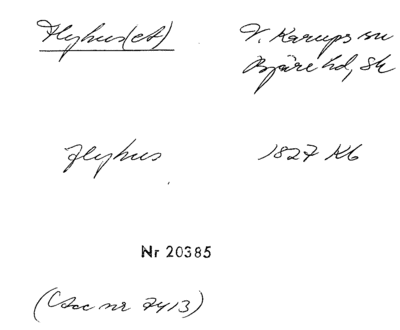 Flyhus(et) V. Karups sn
Bjäre hd, Sk
Flyhus 1827 Kb
Nr 20385
(Acc nr 7413)